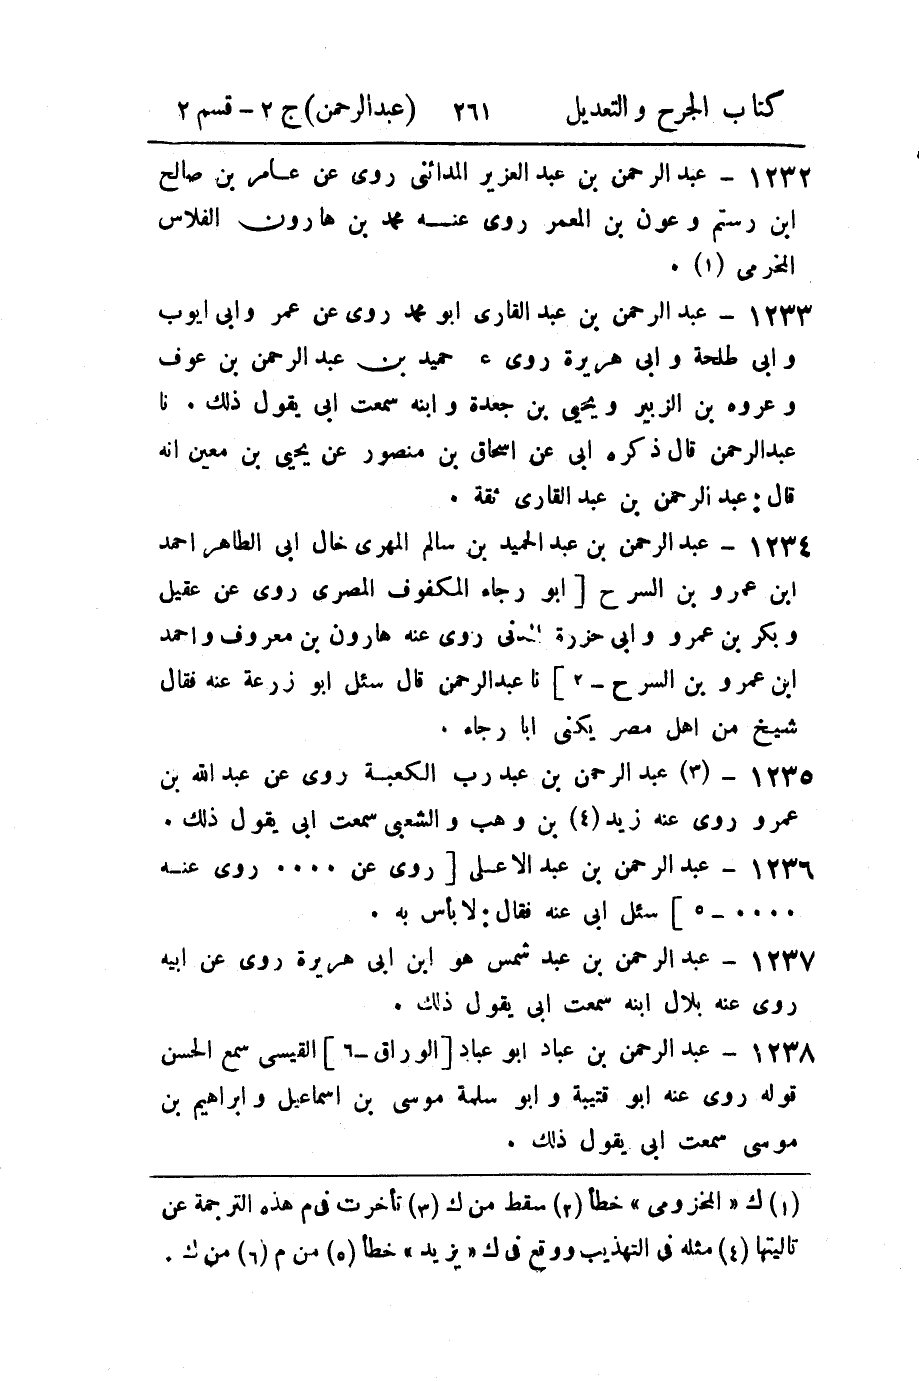 كتاب الجرح و التعديل ٢٦١ (عبدالرحمن) ج ٢ - قسم ٢
١٢٣٢ - عبد الرحمن بن عبد العزيز المدائنى روى عن عامر بن صالح
ابن رستم و عون بن المعمر روى عنه محمد بن هارون الفلاس
المخرمى (١) .
١٢٣٣ - عبد الرحمن بن عبد القارى ابو محمد روى عن عمر وابى ايوب
و ابى طلحة و ابى هريرة روى ء حميد بن عبد الرحمن بن عوف
و عروه بن الزبير و يحيى بن جعدة و ابنه سمعت ابى يقول ذلك . نا
عبدالرحمن قال ذكره ابى عن اسحاق بن منصور عن يحيى بن معين انه
قال : عبد الرحمن بن عبد القارى ثقة .
١٢٣٤ - عبد الرحمن بن عبد الحميد بن سالم المهرى خال ابى الطاهر احمد
ابن عمرو بن السرح [ ابو رجاء المكفوف المصرى روى عن عقيل
و بكر بن عمرو وابى حزرة المدنى روى عنه هارون بن معروف واحمد
ابن عمرو بن السرح - ٢ ] نا عبدالرحمن قال سئل ابو زرعة عنه فقال
شيخ من اهل مصر يكنى ابا رجاء .
١٢٣٥ - (٣) عبد الرحمن بن عبد رب الكعبة روى عن عبد الله بن
عمرو روى عنه زيد (٤) بن وهب و الشعبى سمعت ابى يقول ذلك .
١٢٣٦ - عبد الرحمن بن عبد الاعلى [ روى عن .... روى عنه
.... - ٥ ] سئل ابى عنه فقال : لا بأس به .
١٢٣٧ - عبد الرحمن بن عبد شمس هو ابن ابى هريرة روى عن ابيه
روى عنه بلال ابنه سمعت ابى يقول ذلك .
١٢٣٨ - عبد الرحمن بن عباد ابو عباد [الوراق - ٦ ] القيسى سمع الحسن
قوله روى عنه ابو قتيبة و ابو سلمة موسى بن اسماعيل و ابراهيم بن
موسى سمعت ابى يقول ذلك .
(١) ك « المخزومى » خطأ (٢) سقط من ك (٣) تأخرت فى م هذه الترجمة عن
تاليتها (٤) مثله فى التهذيب ووقع فى ك « يزيد » خطأ (٥) من م (٦) من ك .